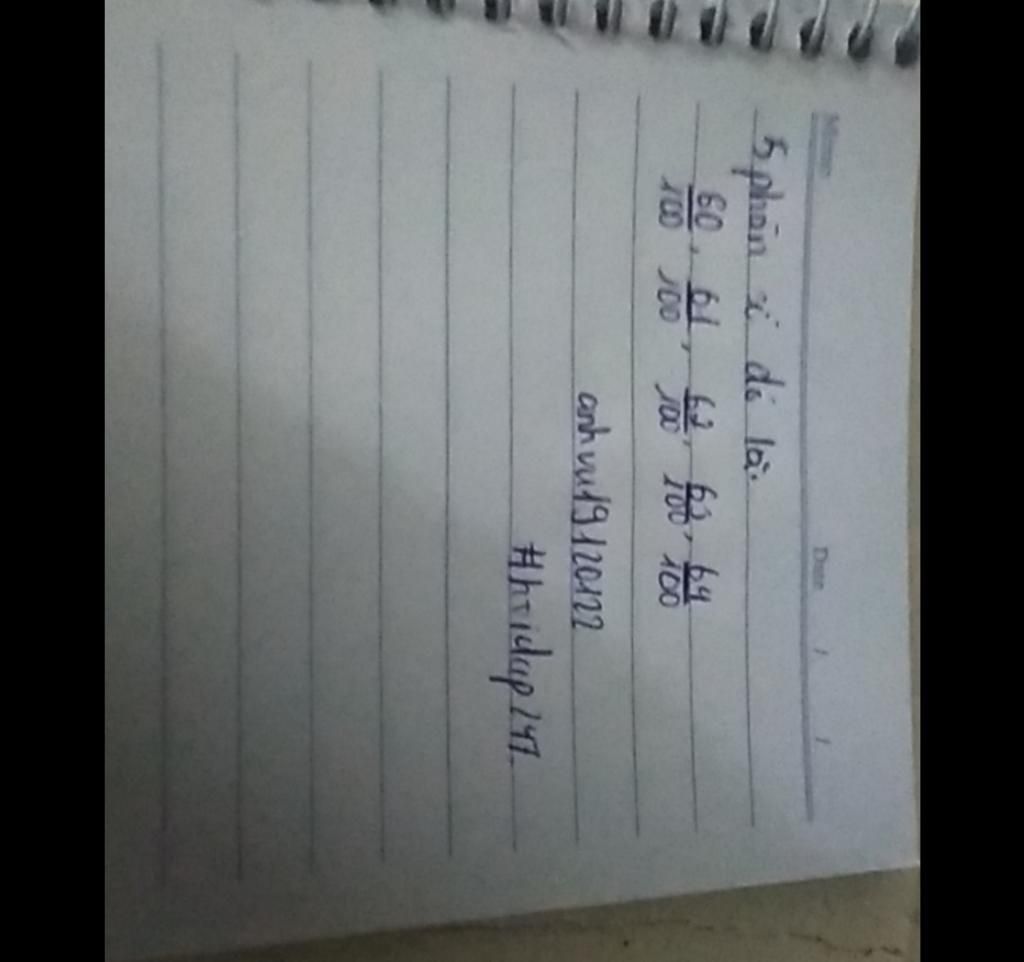 Memo
Date / /
5 phân số đó là:
60/100, 61/100, 62/100, 63/100, 64/100
anhvu19120122
#hoidap247.